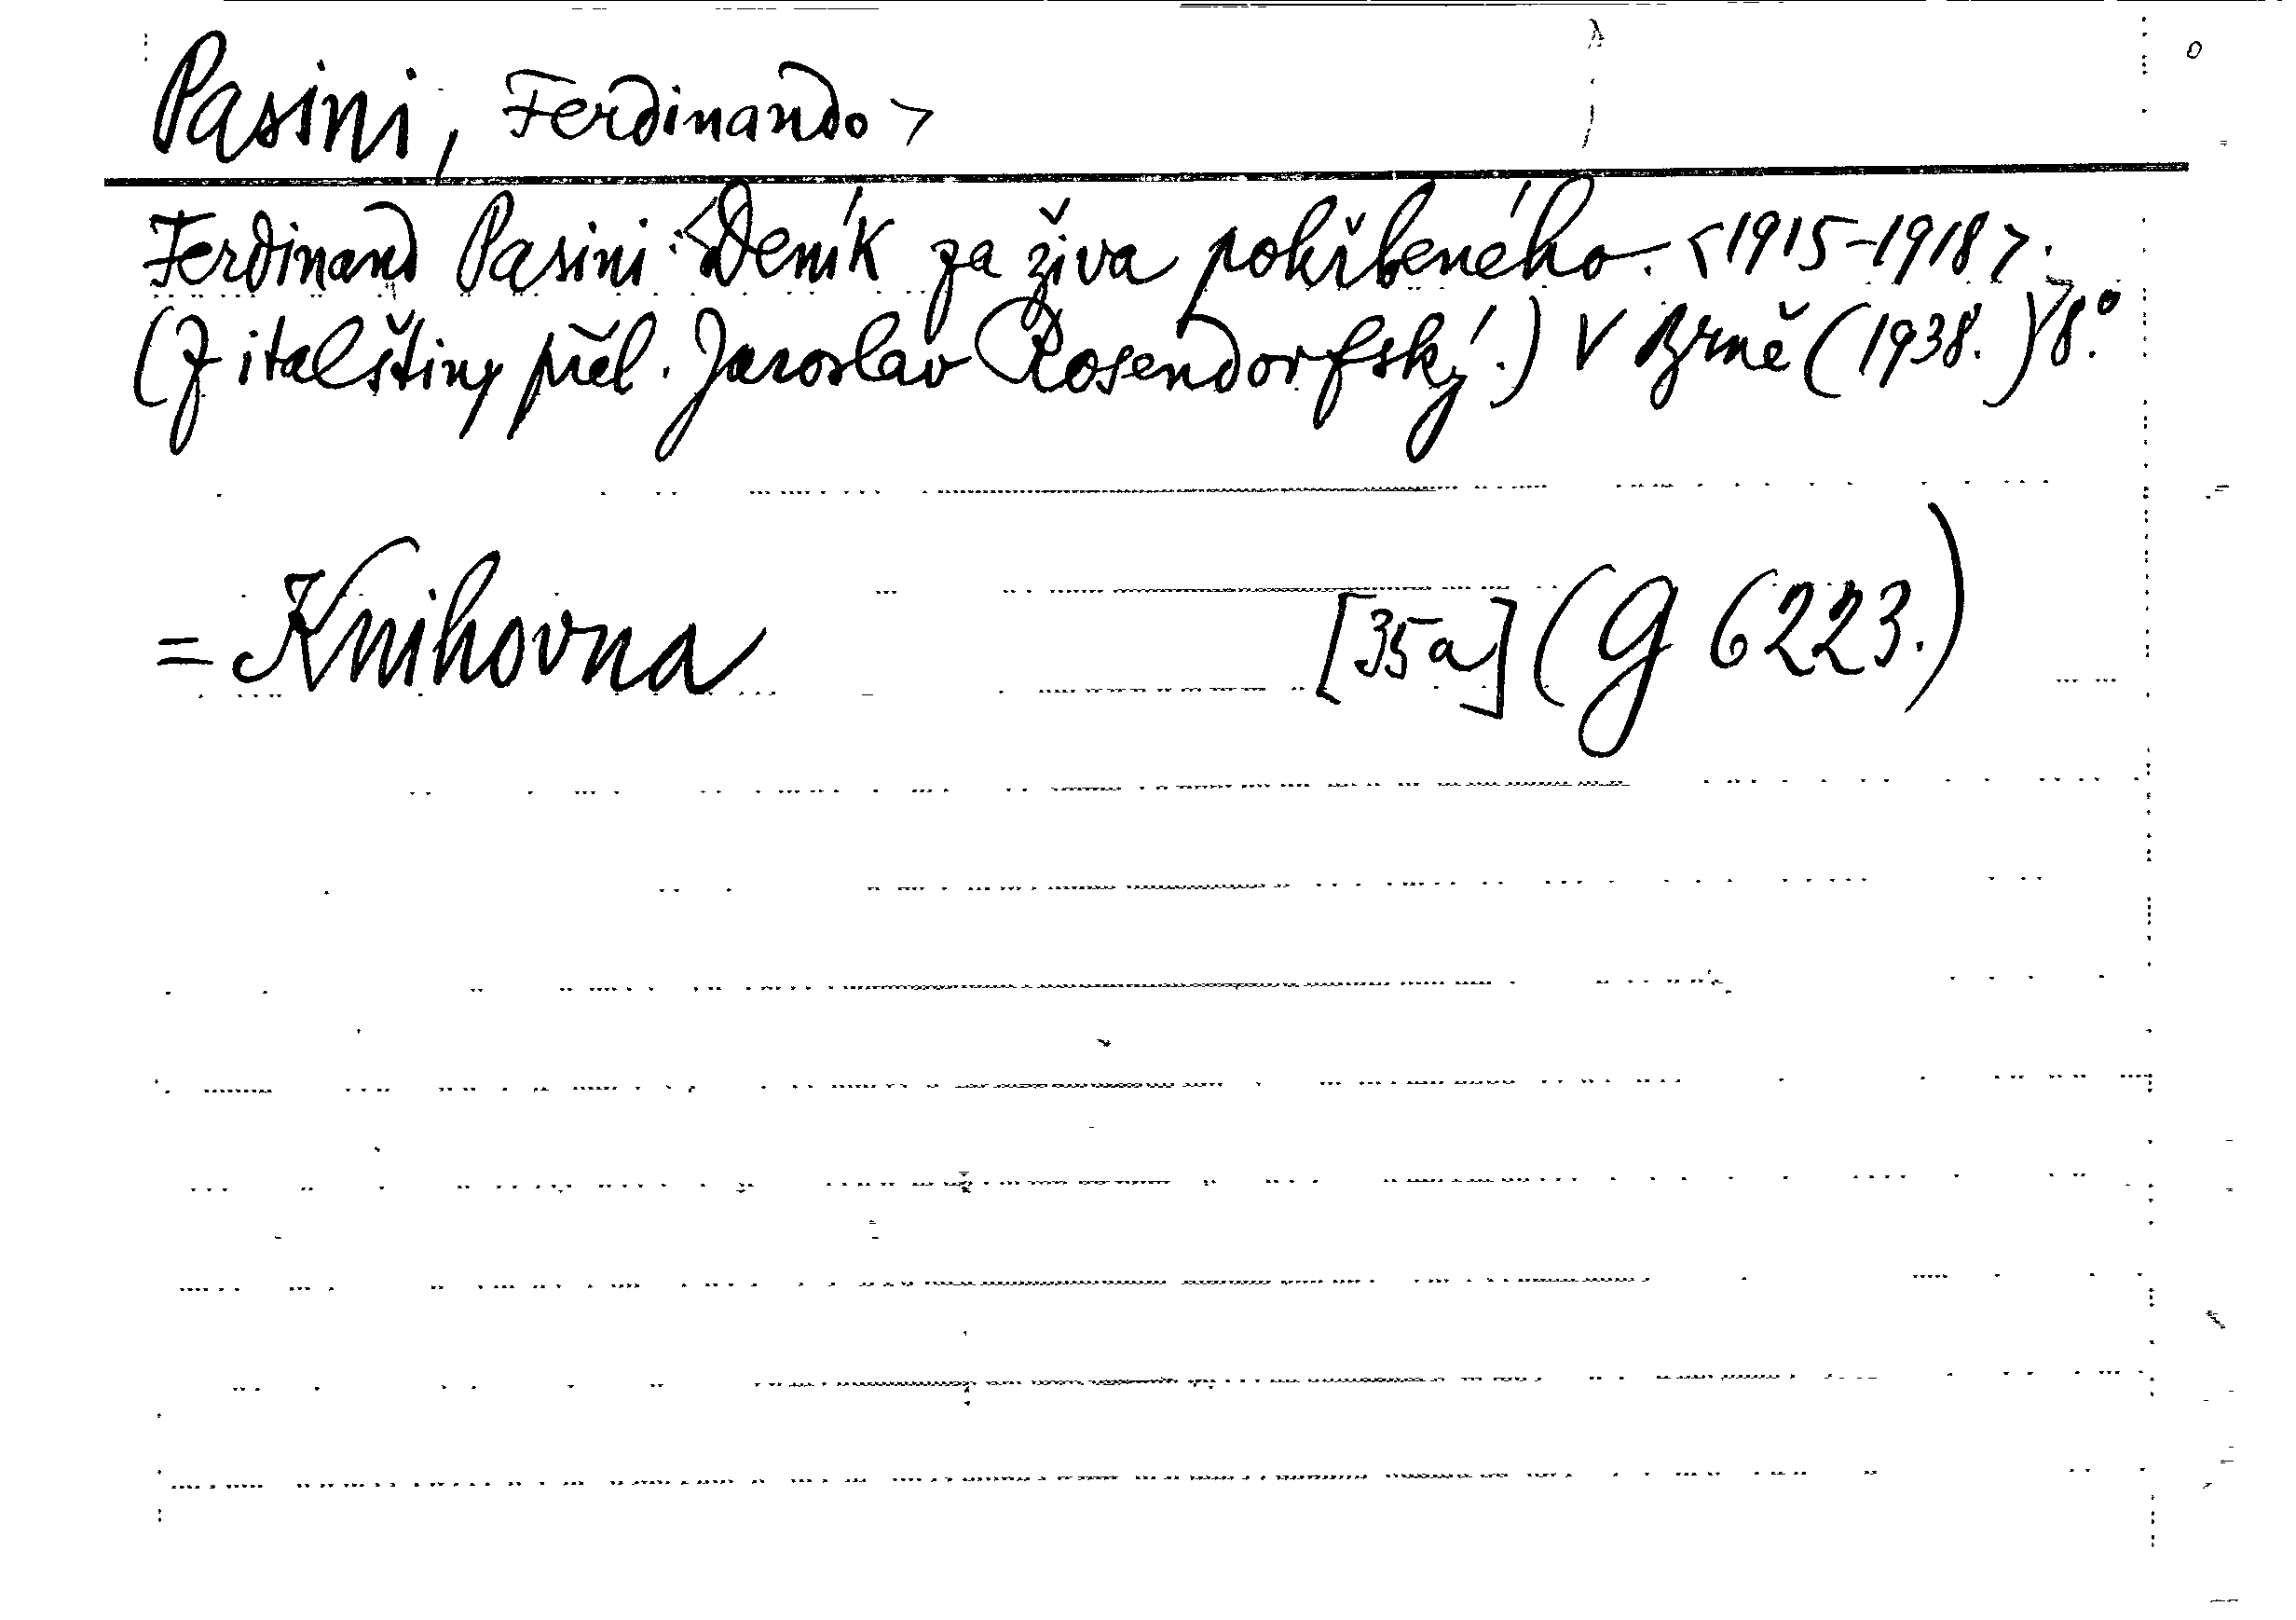 Pasini, Ferdinando >
Ferdinand Pasini: <Deník za živa pohřbeného. <1915-1918>.
(Z italštiny přel. Jaroslav Rosendorfský.) V Brně (1938.) 8.°
= Knihovna [35a] (G 6223.)